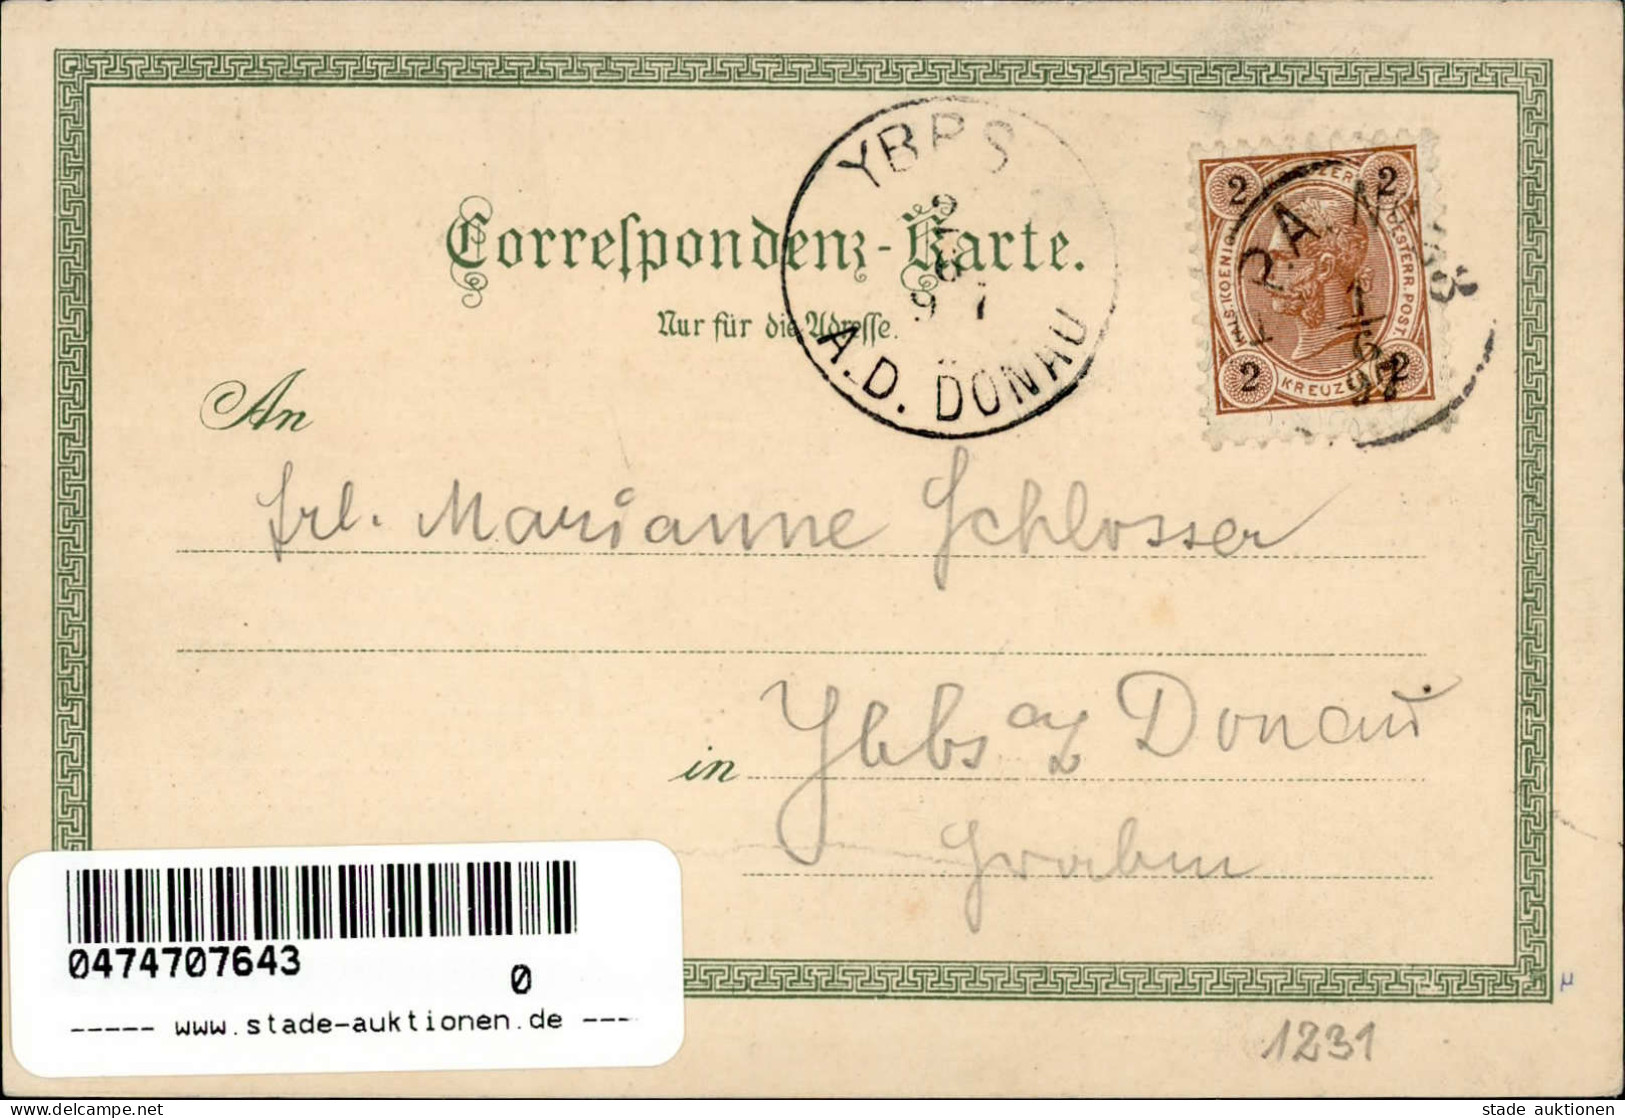 Correspondenz-Karte.
Nur für die Adresse.
YBBS
2
6
97
A.D. DONAU
2 2
2 2
KREUZER
OESTERR. POST.
1
6
97
An
Frl. Marianne Schlosser
in Ybbs a/ Donau
Graben
0474707643
0
----- www.stade-auktionen.de ---
1231
stade auktionen